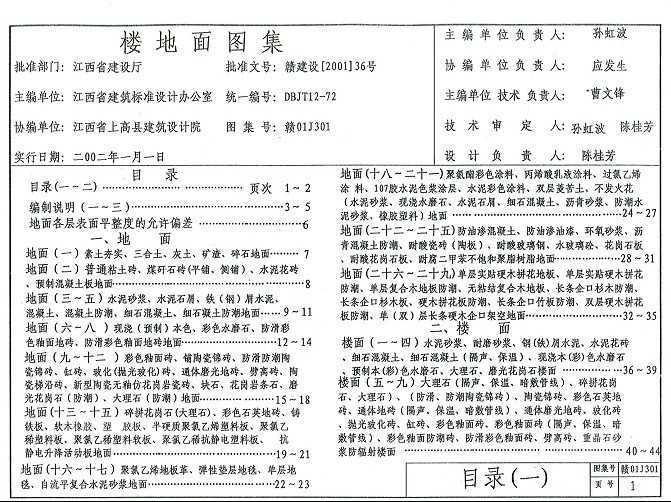 楼地面图集
批准部门：江西省建设厅 批准文号：赣建设[2001]36号
主编单位：江西省建筑标准设计办公室 统一编号：DBJT12-72
协编单位：江西省上高县建筑设计院 图集号：赣01J301
实行日期：二00二年一月一日
主编单位负责人：孙虹波
协编单位负责人：应发生
主编单位技术负责人：曹文锋
技术审定人：孙虹波 陈桂芳
设计负责人：陈桂芳
目录
目录(一~二) 页次 1~2
编制说明(一~三) 3~5
地面各层表面平整度的允许偏差 6
一、地面
地面(一)素土夯实、三合土、灰土、矿渣、碎石地面 7
地面(二)普通粘土砖、煤矸石砖(平铺、侧铺)、水泥花砖
、预制混凝土板地面 8
地面(三~五)水泥砂浆、水泥石屑、铁(钢)屑水泥、
混凝土、混凝土防潮、细石混凝土、细石混凝土防潮地面 9~11
地面(六~八)现浇(预制)本色、彩色水磨石、防滑彩
色釉面地砖、防滑彩色釉面地砖地面 12~14
地面(九~十二)彩色釉面砖、铺陶瓷锦砖、防滑防潮陶
瓷锦砖、缸砖、玻化(抛光玻化)砖、通体磨光地砖、劈离砖、陶
瓷梯沿砖、新型陶瓷无釉仿花岗岩瓷砖、块石、花岗岩条石、磨
光花岗石(防潮)、大理石(防潮)地面 15~18
地面(十三~十五)碎拼花岗石(大理石)、彩色石英地砖、铸
铁板、软木橡胶、塑胶板、半硬质聚氯乙烯塑料板、聚氯乙
稀塑料板、聚氯乙稀塑料软板、聚氯乙稀抗静电塑料板、抗
静电升降活动板地面 19~21
地面(十六~十七)聚氯乙烯地板革、弹性垫层地毯、单层地
毯、自流平复合水泥砂浆地面 22~23
地面(十八~二十一)聚氨酯彩色涂料、丙烯酸乳液涂料、过氯乙烯
涂料、107胶水泥色浆涂层、水泥彩色涂料、双层菱苦土、不发火花
(水泥砂浆、现浇水磨石、水泥石屑、细石混凝土、沥青砂浆、防潮水
泥砂浆、橡胶塑料)地面 24~27
地面(二十二~二十五)防油渗混凝土、防油渗油漆、环氧砂浆、沥
青混凝土防潮、耐酸瓷砖(陶板)、耐酸玻璃钢、水玻璃砼、花岗石板
、耐酸花岗石板、耐腐二甲苯不饱和聚脂树脂地面 28~31
地面(二十六~二十九)单层实贴硬木拼花地板、单层实贴硬木拼花
防潮、单层复合木地板防潮、无粘结复合木地板、长条企口杉木防潮、
长条企口杉木板、硬木拼花板防潮、长条企口竹板防潮、双层硬木拼花
板防潮、单(双)层长条硬木企口架空地面 32~35
二、楼面
楼面(一~四)水泥砂浆、耐磨砂浆、钢(铁)屑水泥、水泥花砖
、细石混凝土、细石混凝土(隔声、保温)、现浇本(彩)色水磨石
、预制本(彩)色水磨石、大理石、磨光花岗石楼面 36~39
楼面(五~九)大理石(隔声、保温、暗敷管线)、碎拼花岗
石、大理石)、(防滑、防潮陶瓷锦砖)、陶瓷锦砖、彩色石英地
砖、通体地砖(隔声、保温、暗敷管线)、通体磨光地砖、玻化砖
、抛光玻化砖、缸砖、彩色釉面砖、彩色釉面砖(隔声、保温、暗
敷管线)、彩色釉面砖防潮、防滑彩色釉面砖、劈离砖、重晶石砂
浆防辐射楼面 40~44
目录(一)
图集号 赣01J301
页号 1